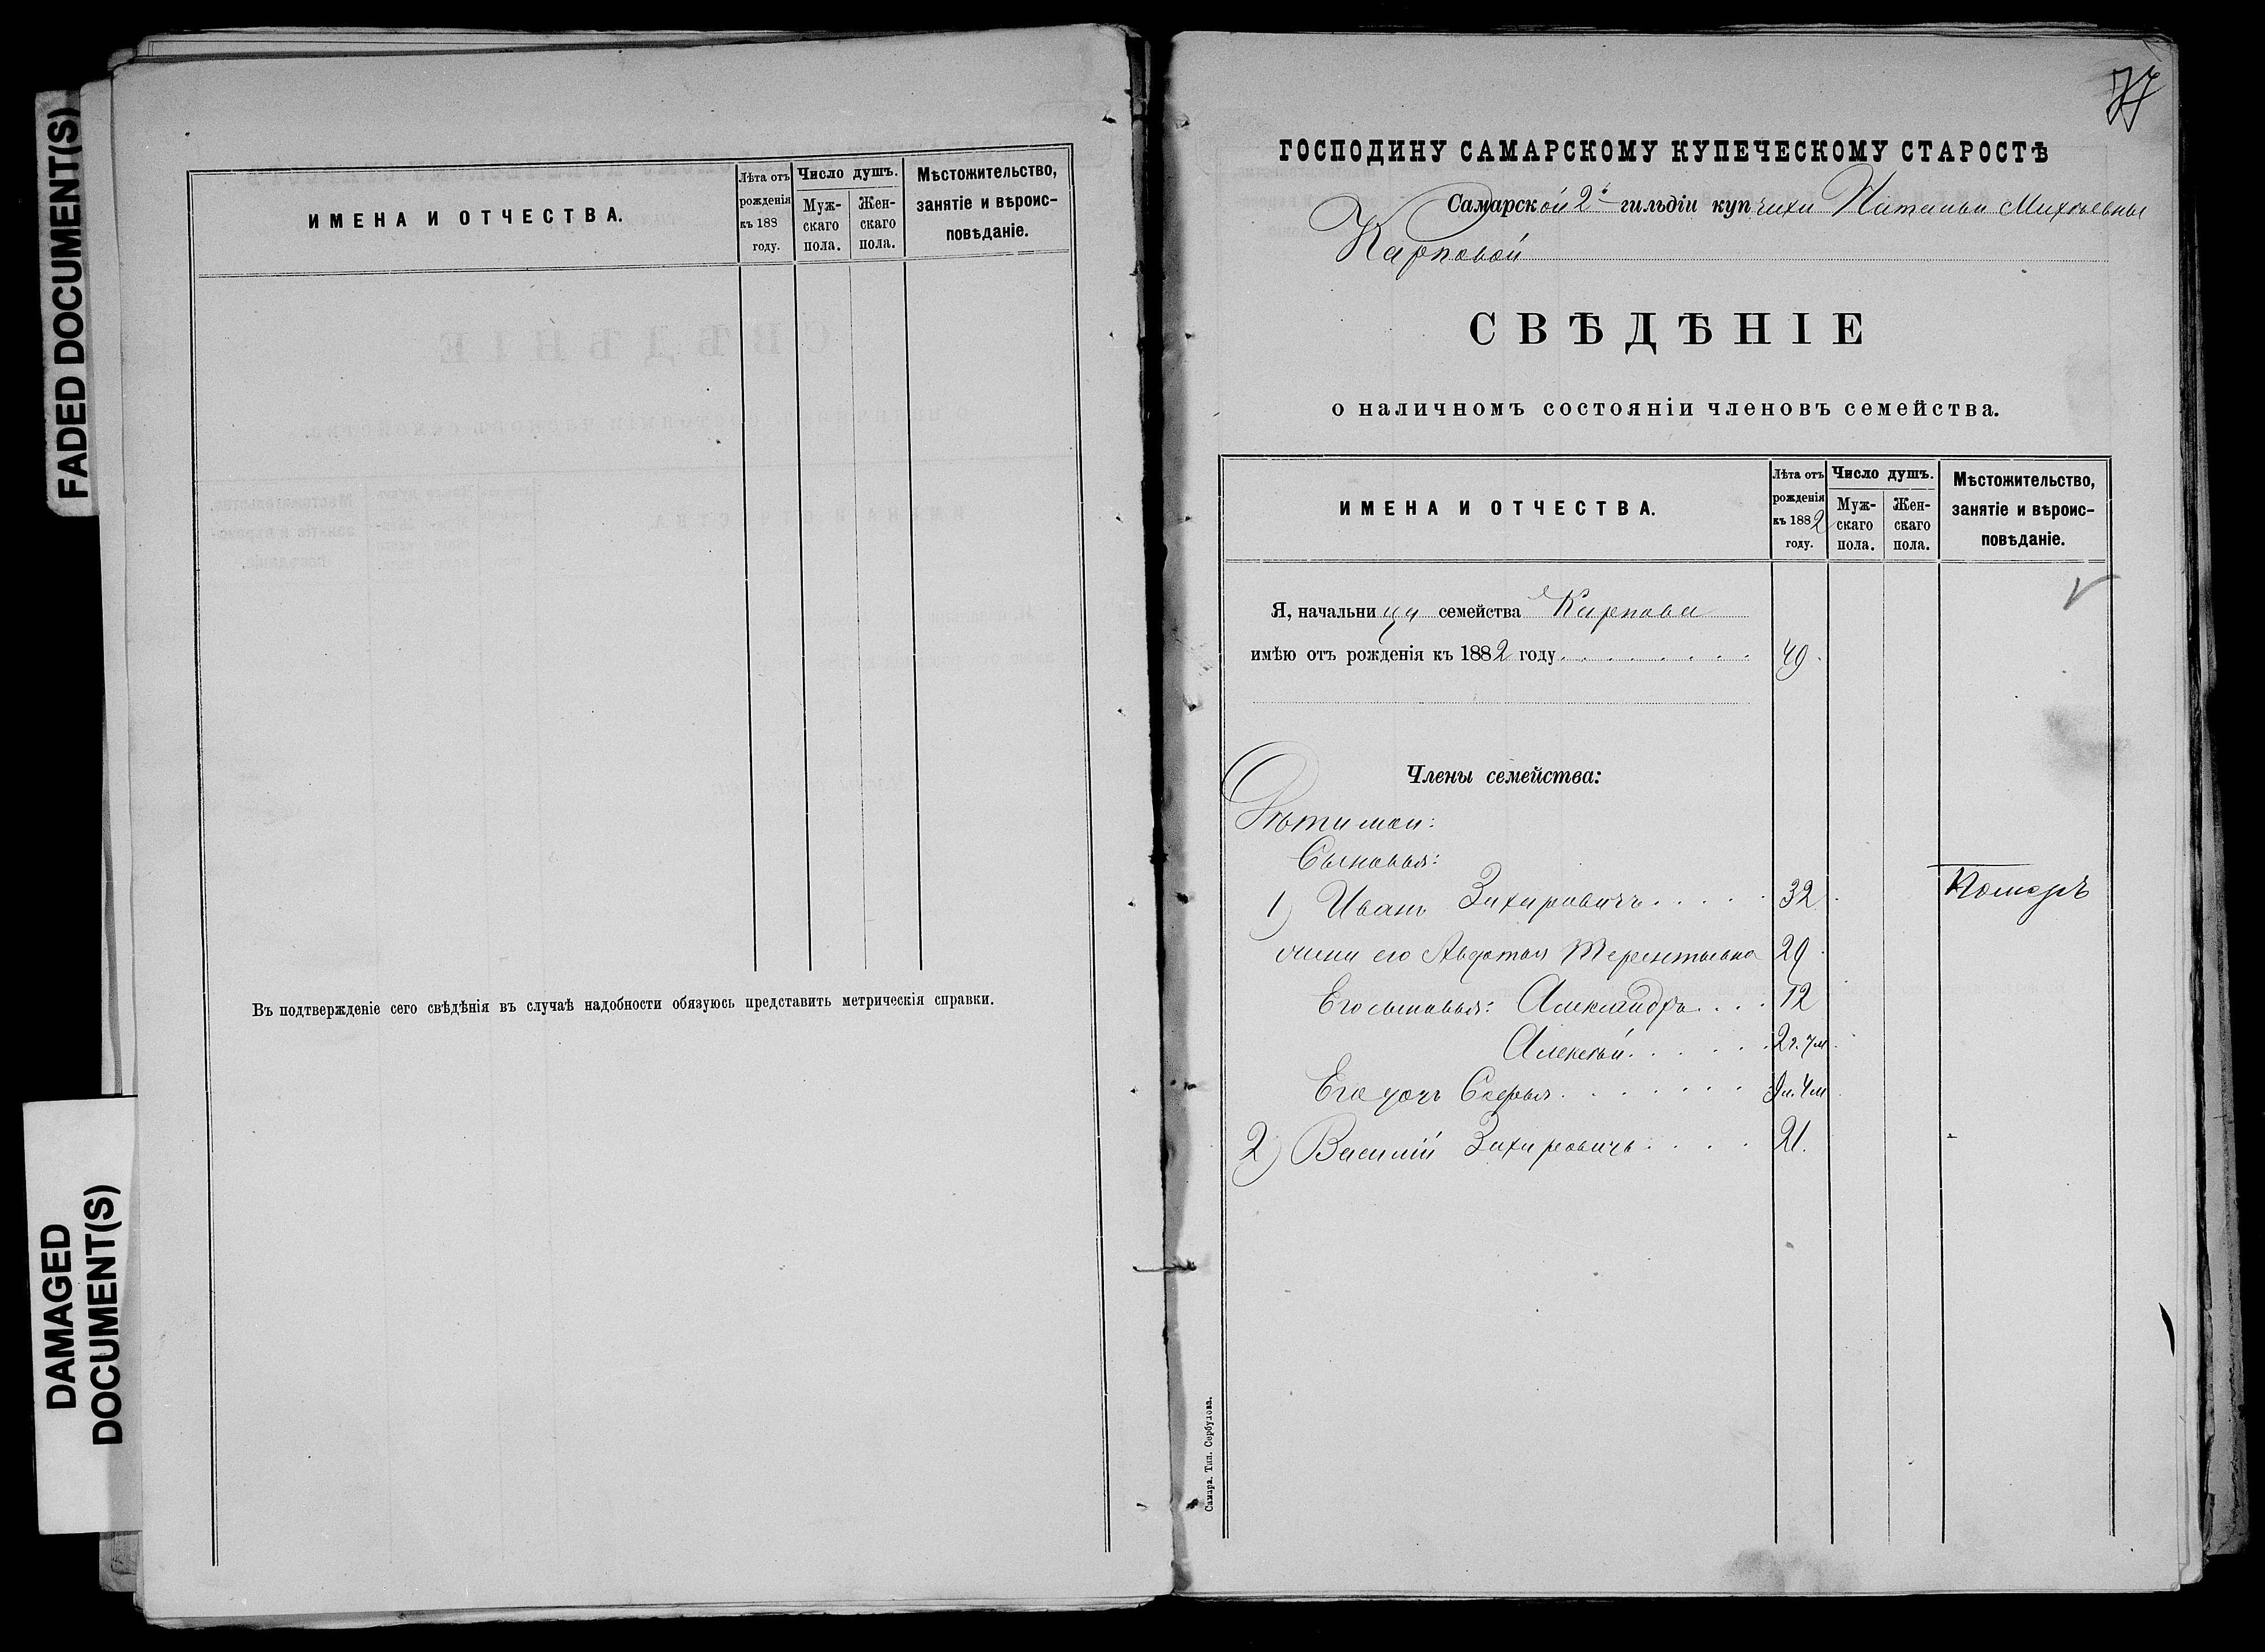 FADED DOCUMENT(S)
DAMAGED
DOCUMENT(S)
ИМЕНА И ОТЧЕСТВА.
Лѣта отъ рожденія къ 188 году.
Число душъ.
Мужскаго пола.
Женскаго пола.
Мѣстожительство, занятіе и вѣроисповѣданіе.
Въ подтвержденіе сего свѣдѣнія въ случаѣ надобности обязуюсь представить метрическія справки.
77
ГОСПОДИНУ САМАРСКОМУ КУПЕЧЕСКОМУ СТАРОСТѢ
Самарской 2й гильдіи купчихи Натальи Михѣевны
Карповой
СВѢДѢНІЕ
о наличномъ состояніи членовъ семейства.
ИМЕНА И ОТЧЕСТВА.
Лѣта отъ рожденія къ 1882 году.
Число душъ.
Мужскаго пола.
Женскаго пола.
Мѣстожительство, занятіе и вѣроисповѣданіе.
Я, начальница семейства Карпова
имѣю отъ рожденія къ 1882 году 49
Члены семейства:
Дѣти мои:
Сыновья:
1) Иванъ Захаровичъ 32
жена его Авдотья Терентьевна 29
Его сыновья: Александръ 12
Алексѣй 2 г. 7 м
Его дочь Софья 4 м
2) Василій Захаровичъ 21.
Самара. Тип. Сербулова.